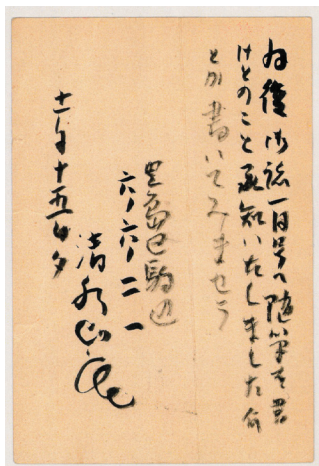 拝復 御誌一月号へ随筆を書
けとのこと承知いたしました 何
とか書いてみませう
豊島区駒込
六ノ六一二一
十一月十五日夕
清水